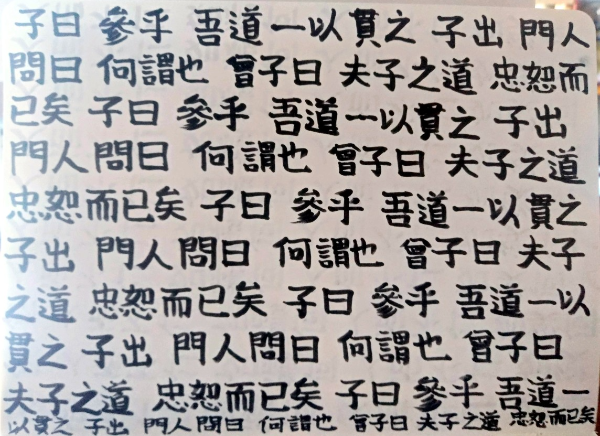 子曰 參乎 吾道一以貫之 子出 門人
問曰 何謂也 曾子曰 夫子之道 忠恕而
已矣 子曰 參乎 吾道一以貫之 子出
門人問曰 何謂也 曾子曰 夫子之道
忠恕而已矣 子曰 參乎 吾道一以貫之
子出 門人問曰 何謂也 曾子曰 夫子
之道 忠恕而已矣 子曰 參乎 吾道一以
貫之 子出 門人問曰 何謂也 曾子曰
夫子之道 忠恕而已矣 子曰 參乎 吾道一
以貫之 子出 門人問曰 何謂也 曾子曰 夫子之道 忠恕而已矣